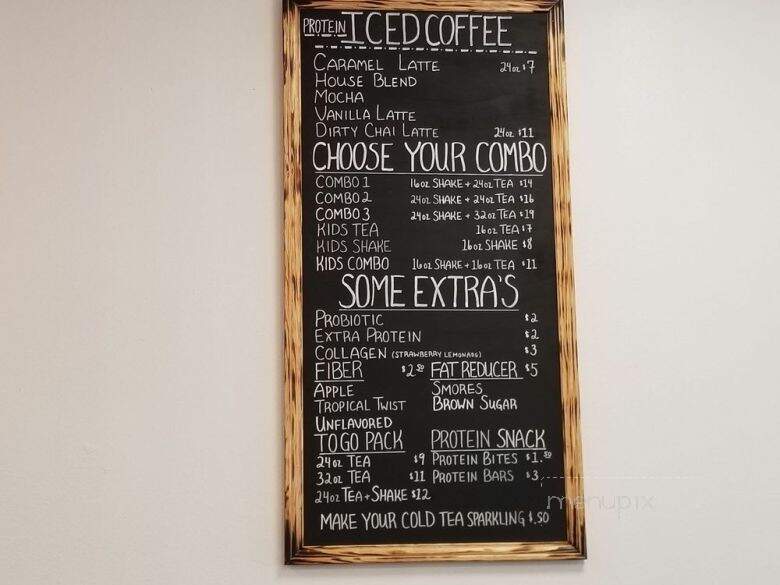 PROTEIN ICED COFFEE
CARAMEL LATTE 24oz $7
HOUSE BLEND
MOCHA
VANILLA LATTE
DIRTY CHAI LATTE 24oz $11
CHOOSE YOUR COMBO
COMBO 1 16oz SHAKE + 24oz TEA $14
COMBO 2 24oz SHAKE + 24oz TEA $16
COMBO 3 24oz SHAKE + 32oz TEA $19
KIDS TEA 16oz TEA $7
KIDS SHAKE 16oz SHAKE $8
KIDS COMBO 16oz SHAKE + 16oz TEA $11
SOME EXTRA'S
PROBIOTIC $2
EXTRA PROTEIN $2
COLLAGEN (STRAWBERRY LEMONADE) $3
FIBER $2.50 FAT REDUCER $5
APPLE SMORES
TROPICAL TWIST BROWN SUGAR
UNFLAVORED
TO GO PACK PROTEIN SNACK
24oz TEA $9 PROTEIN BITES $1.50
32oz TEA $11 PROTEIN BARS $3
24oz TEA + SHAKE $12
MAKE YOUR COLD TEA SPARKLING $.50
menupix